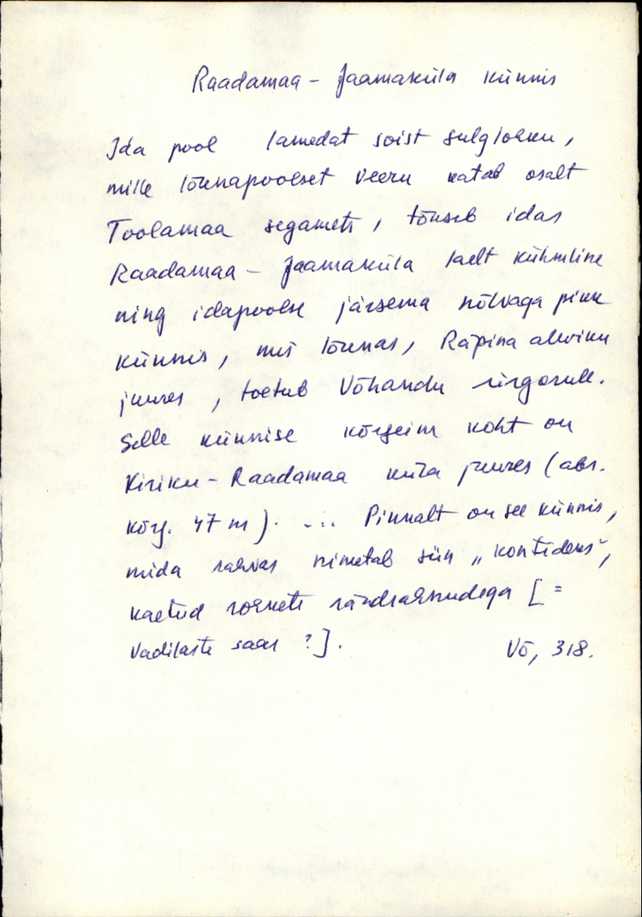 Raadamaa – Jaamaküla künnis
Ida pool lamedat soist sulglohku,
mille lõunapoolset veeru katab osalt
Toolamaa segamets, tõuseb idas
Raadamaa – Jaamaküla laelt kühmline
ning idapoolse järsema nõlvaga pikk
künnis, mis lõunas, Räpina aleviku
juures, toetub Võhandu ürgorule.
Selle künnise kõrgeim koht on
Kiriku-Raadamaa küla juures (abs.
kõrg. 47 m). ... Pinnalt on see künnis,
mida rahvas nimetab siin „kontideks",
kaetud rohkete rändrahnudega [=
Vadilaste saar ?].
Võ, 318.